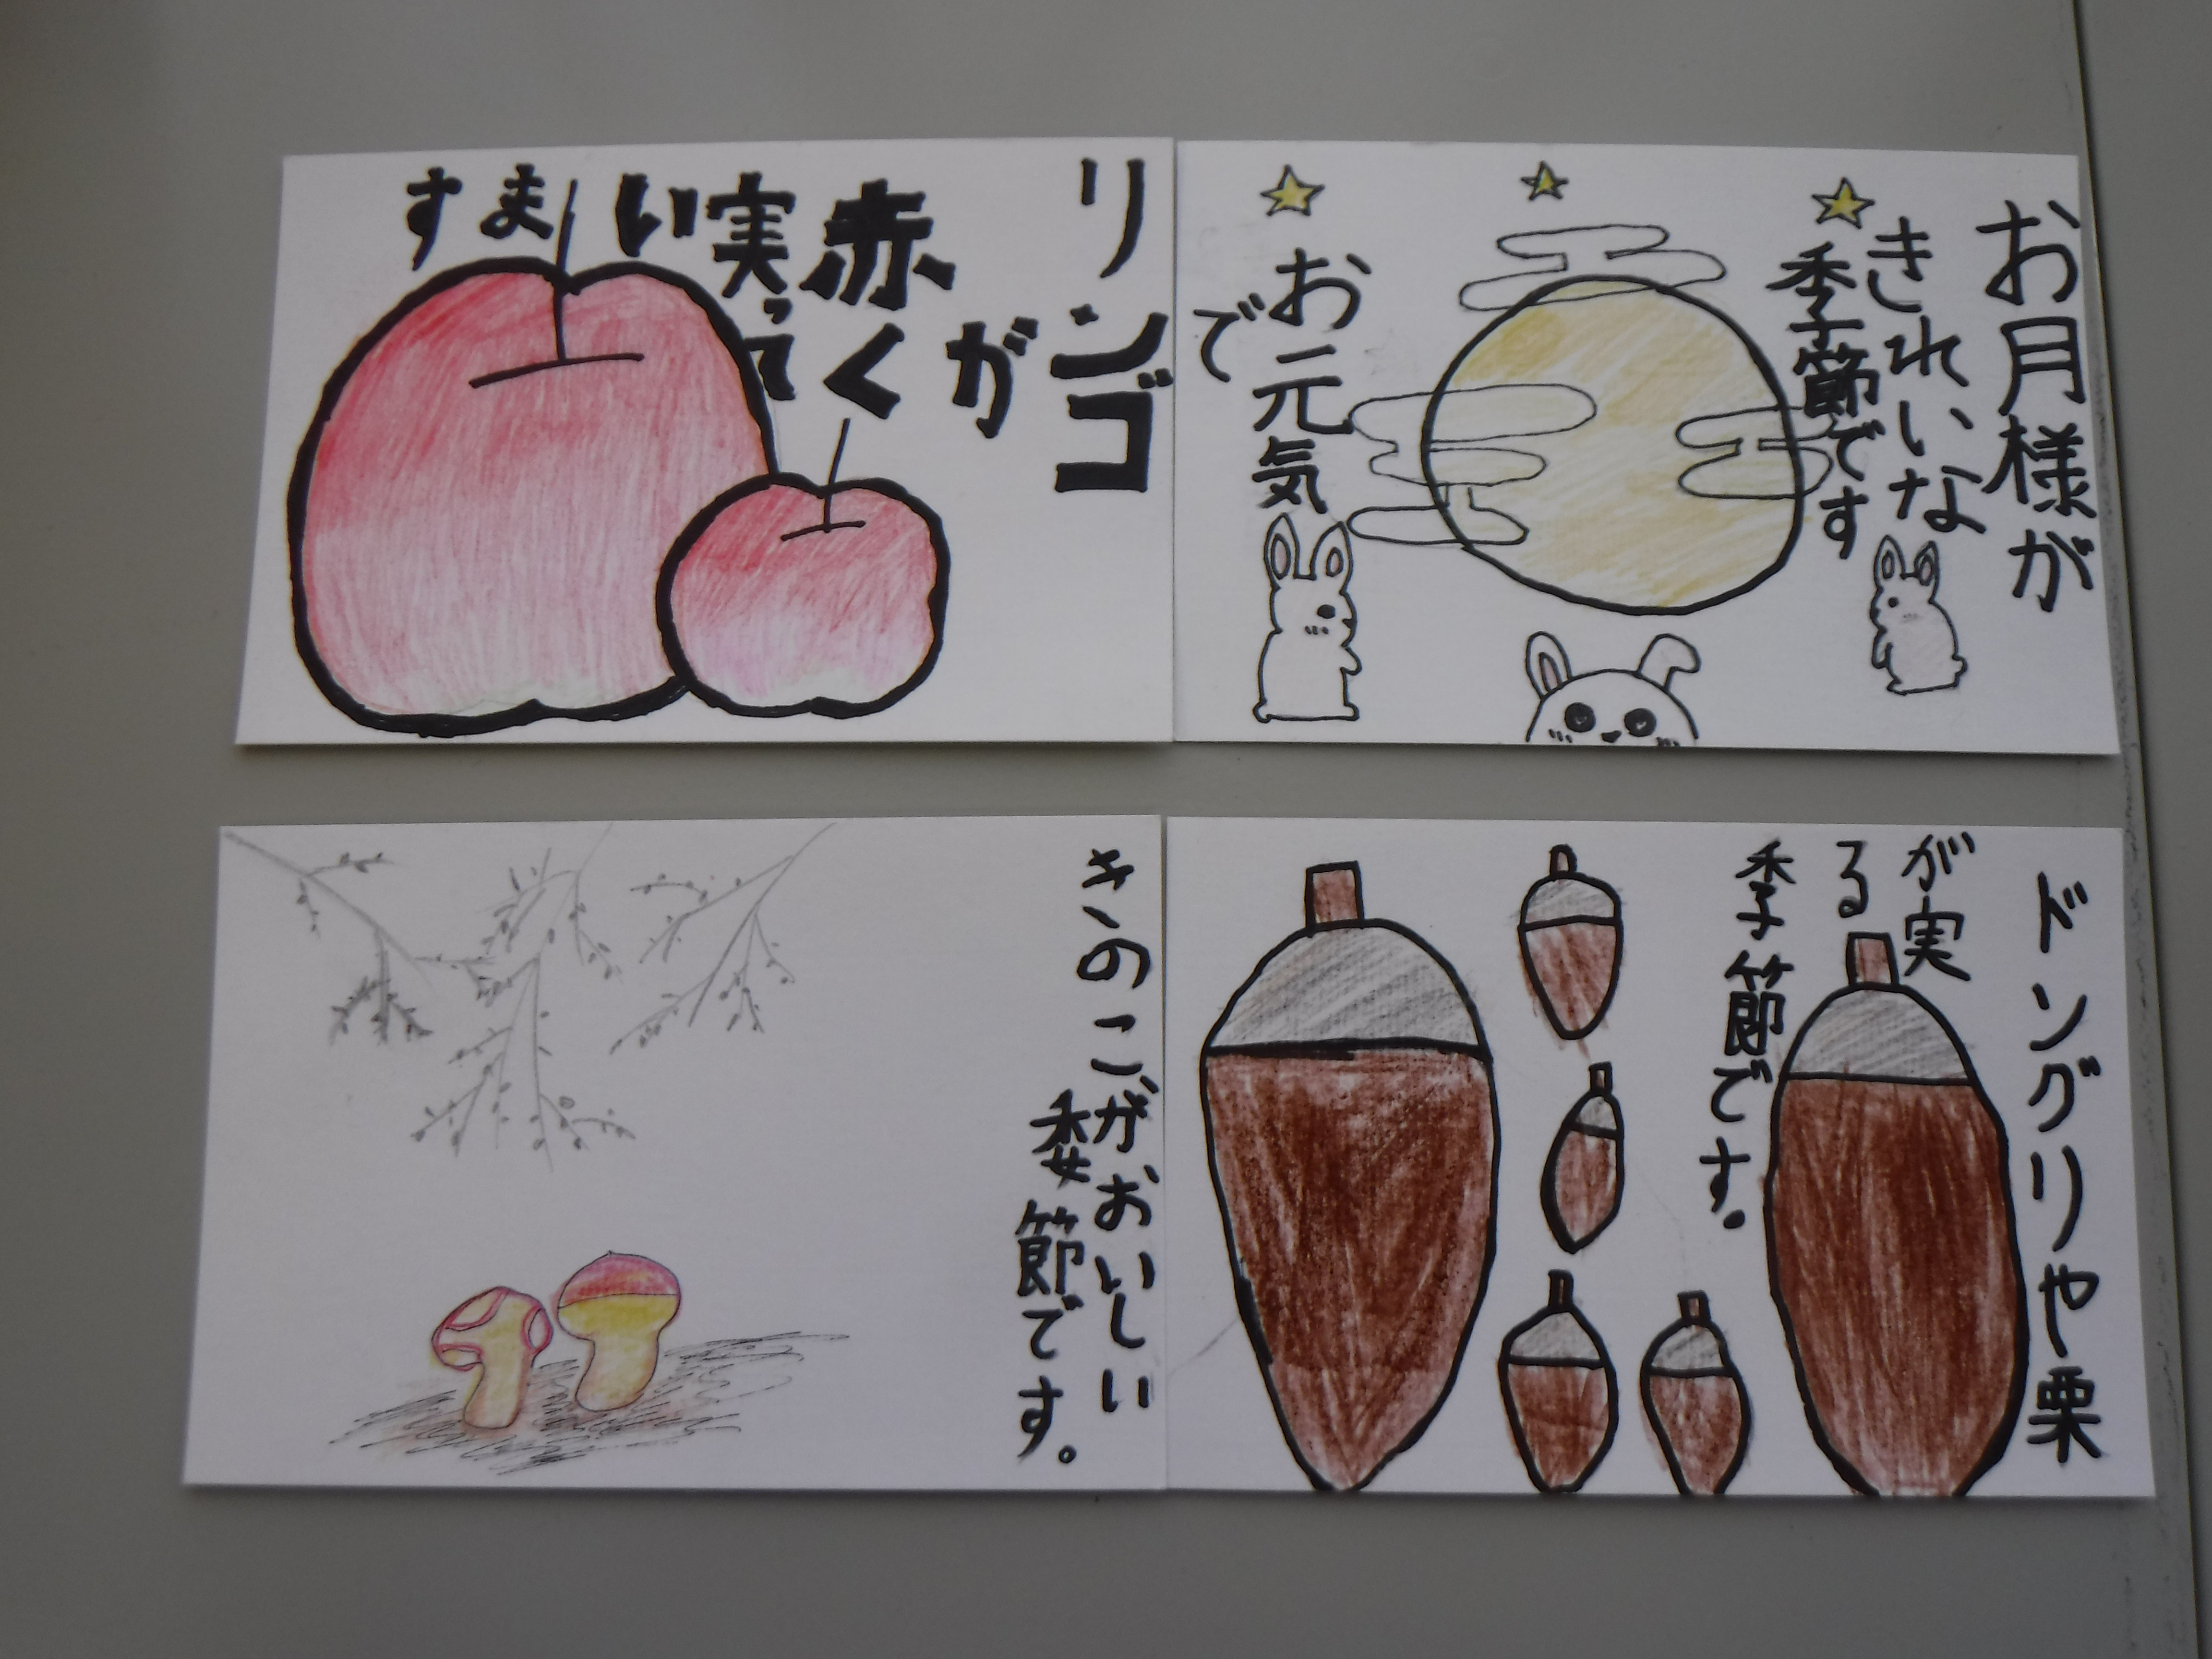 リンゴ
が
赤く
実って
います
お月様が
きれいな
季節です
お元気
で
きのこがおいしい
委節です。
ドングリや栗
が実
る
季節です。